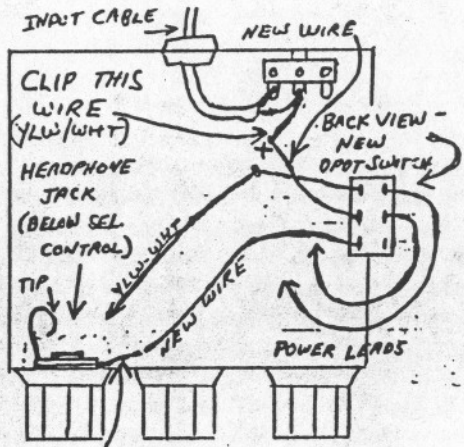 INPUT CABLE
NEW WIRE
CLIP THIS
WIRE
(YLW/WHT)
+
BACK VIEW -
NEW
DPDT SWITCH
HEADPHONE
JACK
(BELOW SEL.
CONTROL)
TIP
YLW-WHT
NEW WIRE
POWER LEADS